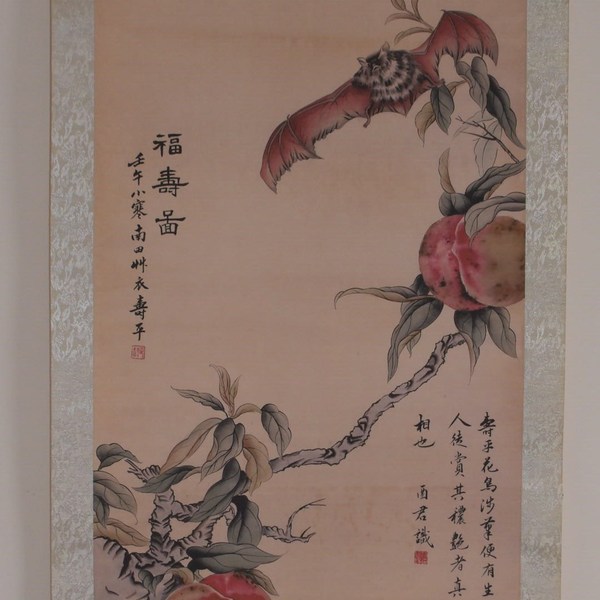 福壽啚
壬午小寒南田艸衣壽平
壽平花鳥涉筆便有生
人徒賞其穠艶者真
相也
酉君識